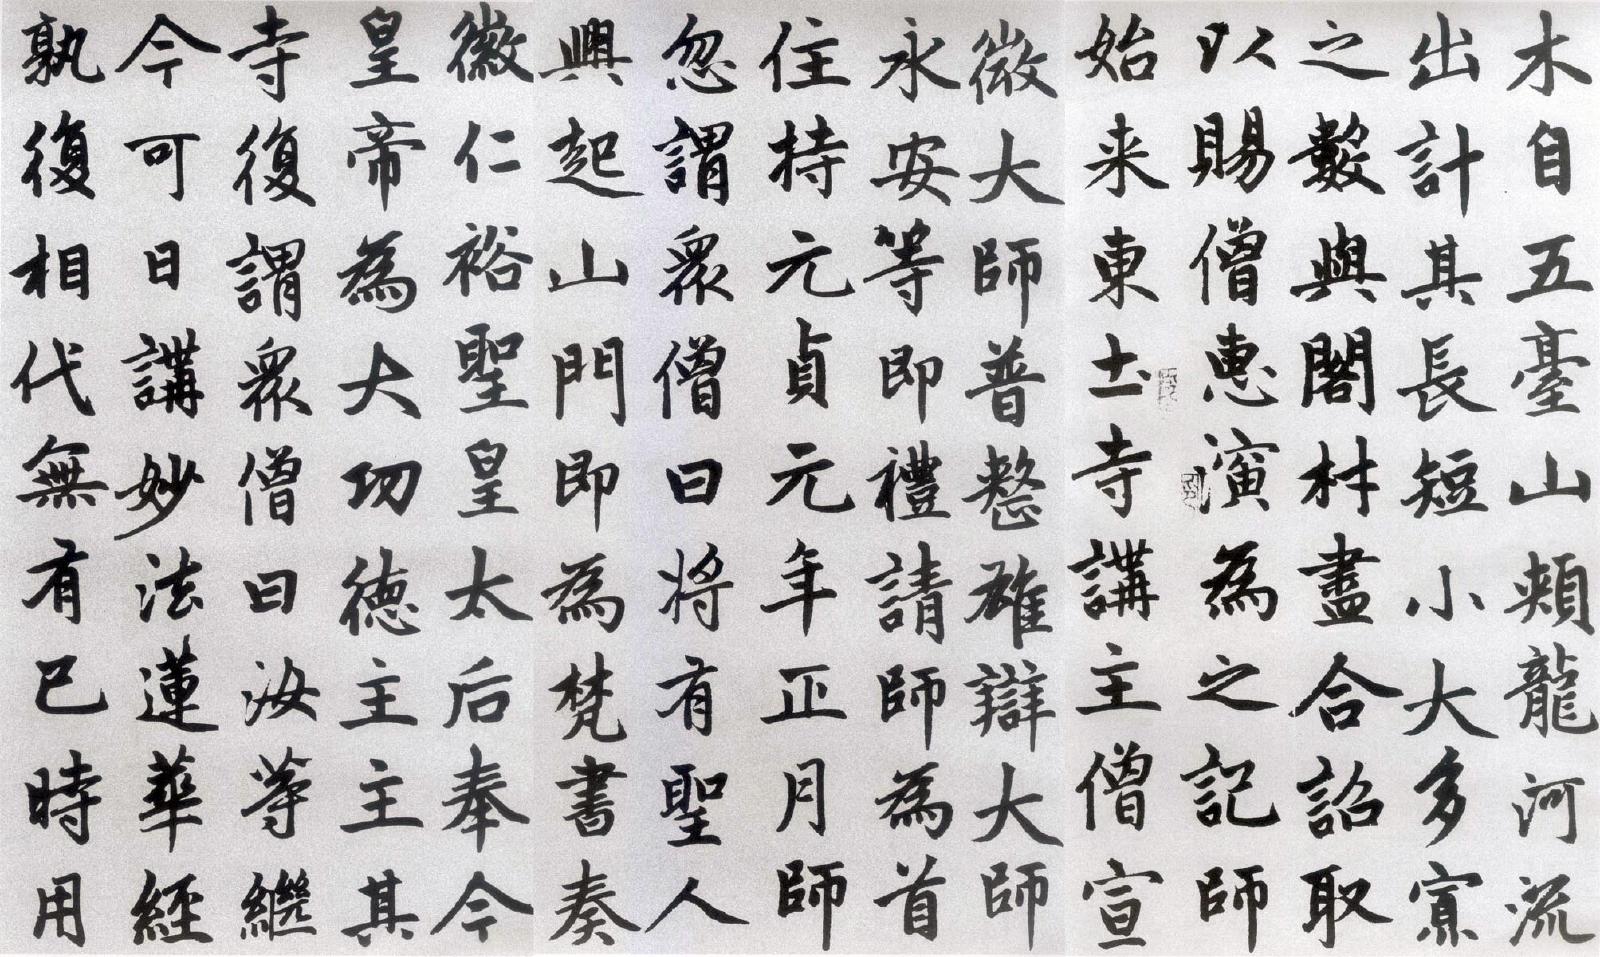 木自五臺山頰龍河流
出計其長短小大多寡
之數與閣材盡合詔取
以賜僧惠演為之記師
始来東土寺講主僧宣
微大師普整雄辯大師
永安等即禮請師為首
住持元貞元年正月師
忽謂眾僧曰将有聖人
興起山門即為梵書奏
徽仁裕聖皇太后奉今
皇帝為大功德主主其
寺復謂眾僧曰汝等繼
今可日講妙法蓮華經
孰復相代無有已時用